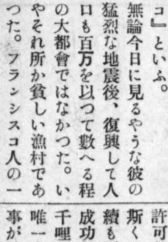 コ』といふ。
無論今日に見るやうな彼の
猛烈な地震後、復興して人
口も百万を以つて数へる程
の大都會ではなかつた。い
やそれ所か貧しい漁村であ
つた。フランシスコ人の一
許可
斯く
續も
成功
千哩
唯一
事が